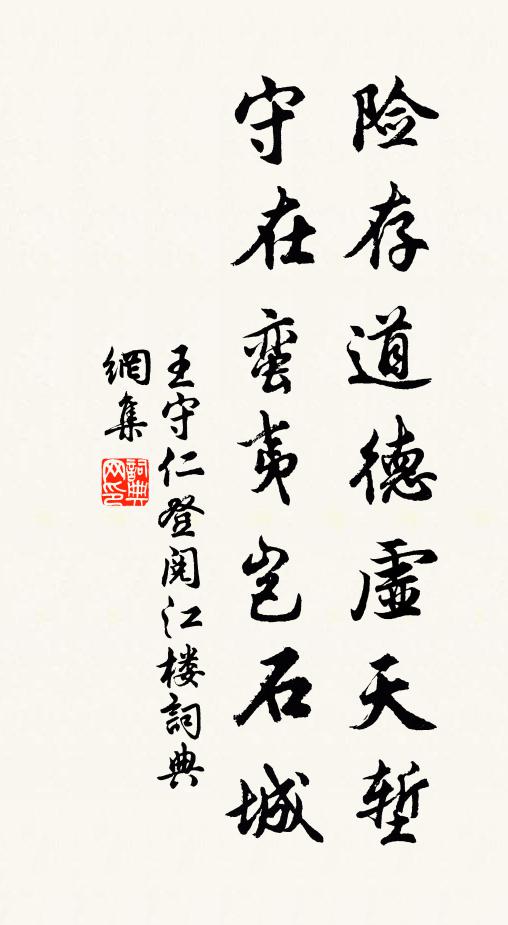 险存道德虚天堑
守在蛮夷岂石城
王守仁登阅江楼詞典
網集
詞典网印